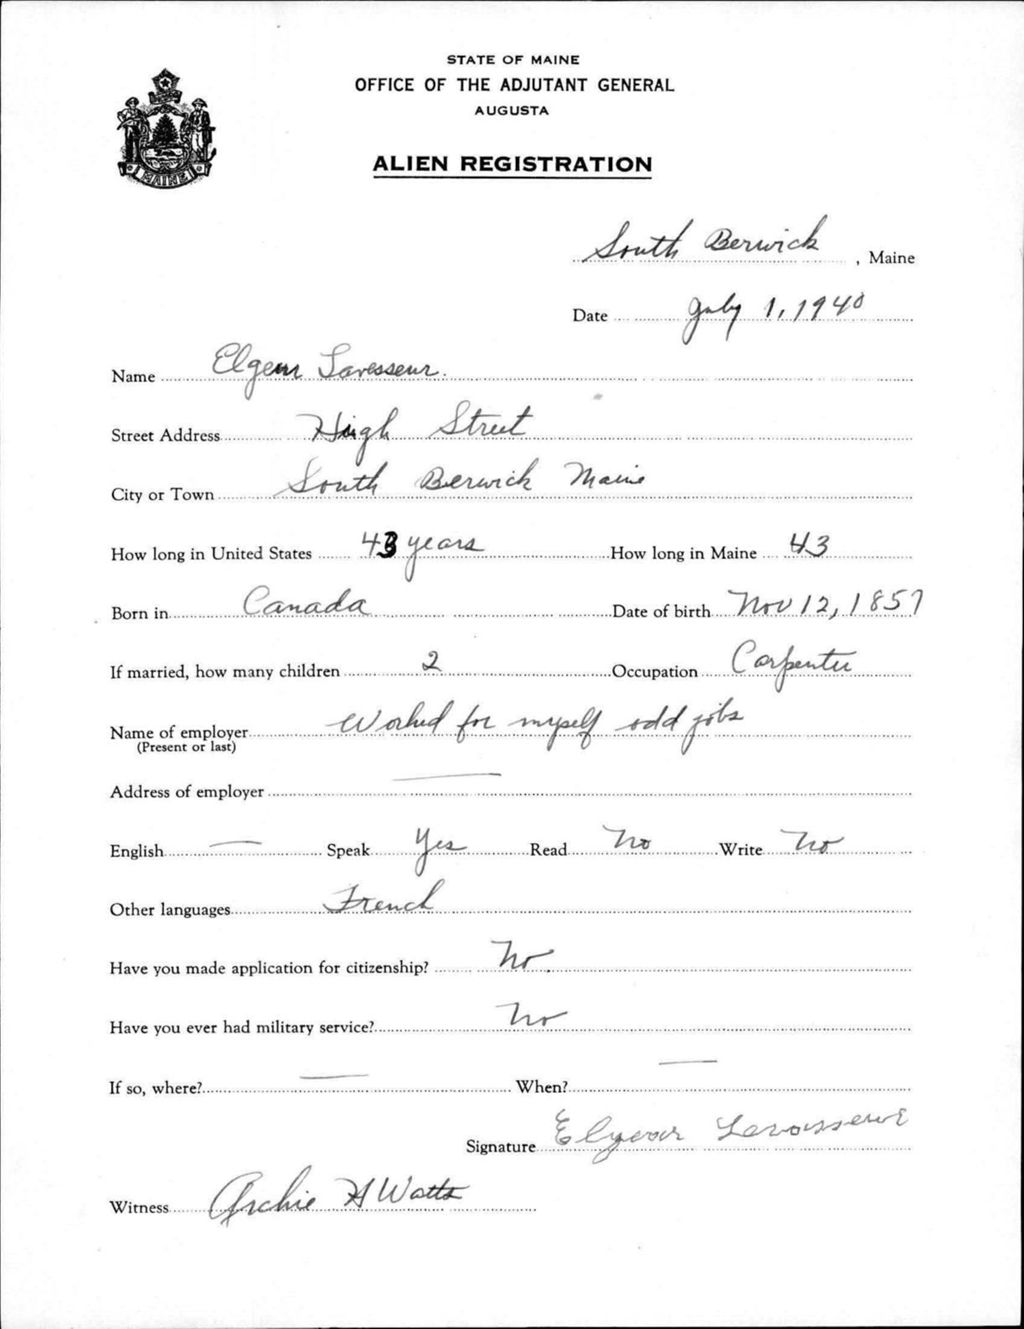 STATE OF MAINE
OFFICE OF THE ADJUTANT GENERAL
AUGUSTA
MAINE
ALIEN REGISTRATION
South Berwick, Maine
Date July 1, 1940
Name Elgear Lavesseur.
Street Address High Street
City or Town South Berwick Maine
How long in United States 43 years How long in Maine 43
Born in Canada Date of birth Nov 12, 1857
If married, how many children 2 Occupation Carpenter
Name of employer Worked for myself odd jobs
(Present or last)
Address of employer —
English — Speak Yes Read No Write No
Other languages French
Have you made application for citizenship? No.
Have you ever had military service? No
If so, where? — When? —
Signature
Witness Archie H Watts